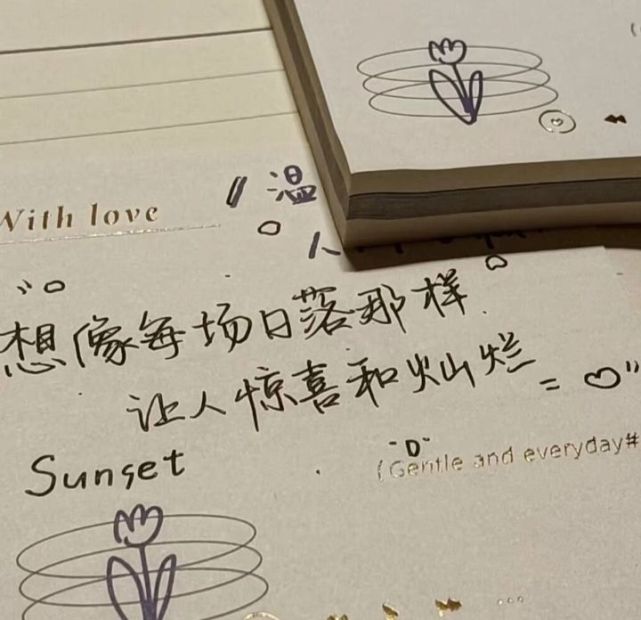 With love
温
人
想像每场日落那样
让人惊喜和灿烂
Sunset
(Gentle and everyday#